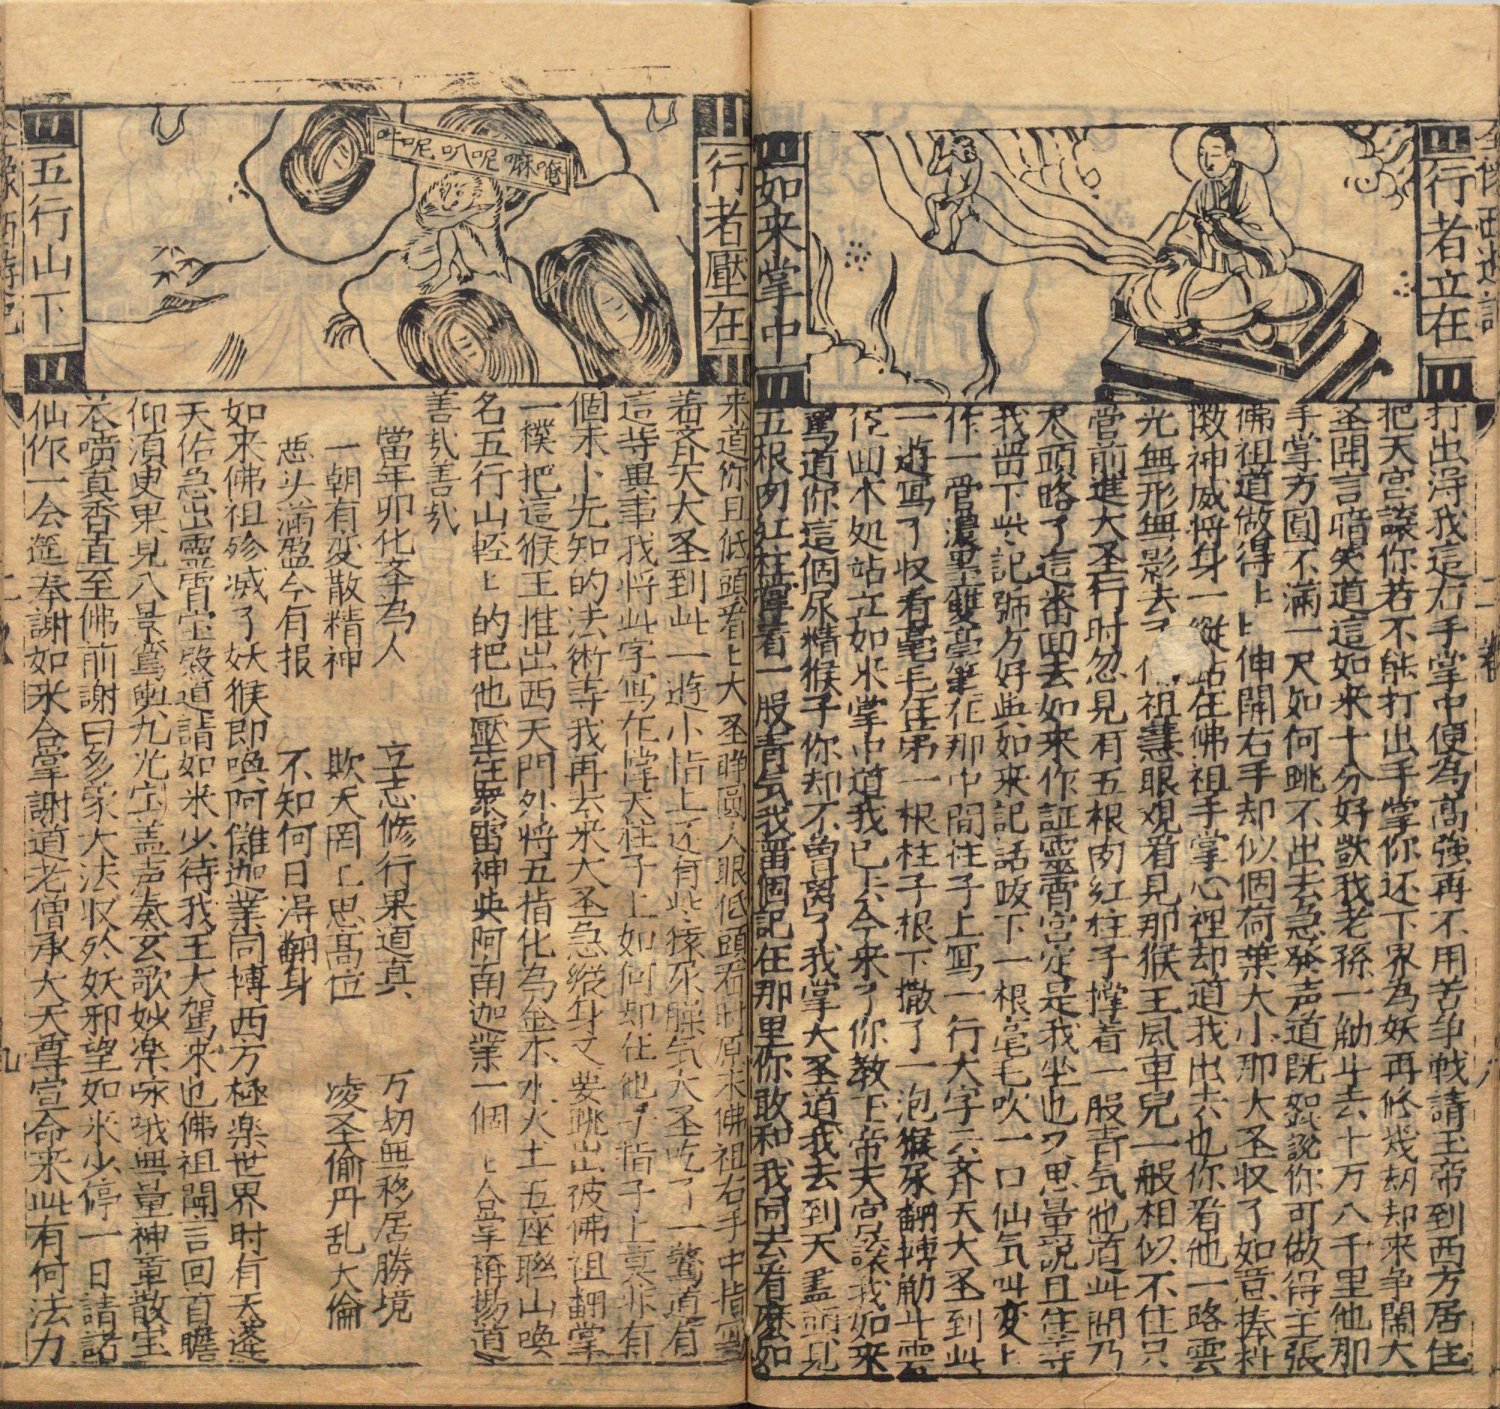 全像西遊記
二卷
八
行者立在
如来掌中
打出得我這右手掌中便為髙強再不用苦争戰請玉帝到西方居住
把天宫讓你若不能打出手掌你还下界為妖再修幾劫却来争閙大
圣聞言暗笑道這如来十分好獃我老孫一觔斗去十万八千里他那
手掌方圓不滿一尺如何跳不出去急発声道既如此說你可做得主張
佛祖道做得上上伸開右手却似個荷葉大小那大圣収了如意捧抖
擻神威将身一縱站在佛祖手掌心裡却道我出去也你看他一路雲
光無形無影去了佛祖慧眼观看見那猴王風車兒一般相似不住只
管前進大圣行时忽見有五根肉紅柱子撑着一股青気他道此間乃
尽頭路了這番囬去如来作証霊霄宫定是我坐也又思量說且住等
我畄下些記号方好與如来記話𠮟下一根毫毛吹一口仙気叫変上
作一管濃墨雙毫筆在那中間柱子上寫一行大字云齐天大圣到此
一遊寫了収看毫毛在弟一根柱子根下撒了一泡猴尿翻轉觔斗雲
径囬本処站立如来掌中道我已去今来了你教玉帝天宫讓我如来
罵道你這個尿精猴子你却不曽离了我掌大圣道我去到天盡頭見
五根肉紅柱撑着一股青気我畱個記在那里你敢和我同去看麽如
行者壓在
五行山下
吽呢叭呢嘛唵
来道你且低頭看上大圣睁圓火眼低頭看时原来佛祖右手中指寫
着齐天大圣到此一遊小指上还有些猿尿臊気大圣吃了一驚道有
這等異事我将此字寫在撑天柱子上如何却在他手指子上莫非有
個未卜先知的法術等我再去来大圣急縱身又要跳出彼佛祖翻掌
一樸把這猴王推出西天門外将五指化為金木水火土五座聯山喚
名五行山輕上的把他壓住眾雷神與阿南迦葉一個上合掌稱揚道
善哉善哉
當年卯化孝為人　立志修行果道真　万刼無移居勝境
一朝有変散精神　欺天罔上思髙位　凌圣偷丹乱大倫
悪头滿盈今有报　不知何日得翻身
如来佛祖殄滅了妖猴即喚阿儺迦葉同摶西方極楽世界时有天蓬
天佑急出霊霄宝殿道請如来少待我王大駕来也佛祖聞言回首瞻
仰須叟果見八景鸞輿九光宝盖声奏玄歌妙楽咏哦無量神章散宝
花噴真香直至佛前謝曰多蒙大法収殄妖邪望如来少停一日請諸
仙作一会筵奉謝如来合掌謝道老僧承大天尊宣命来此有何法力